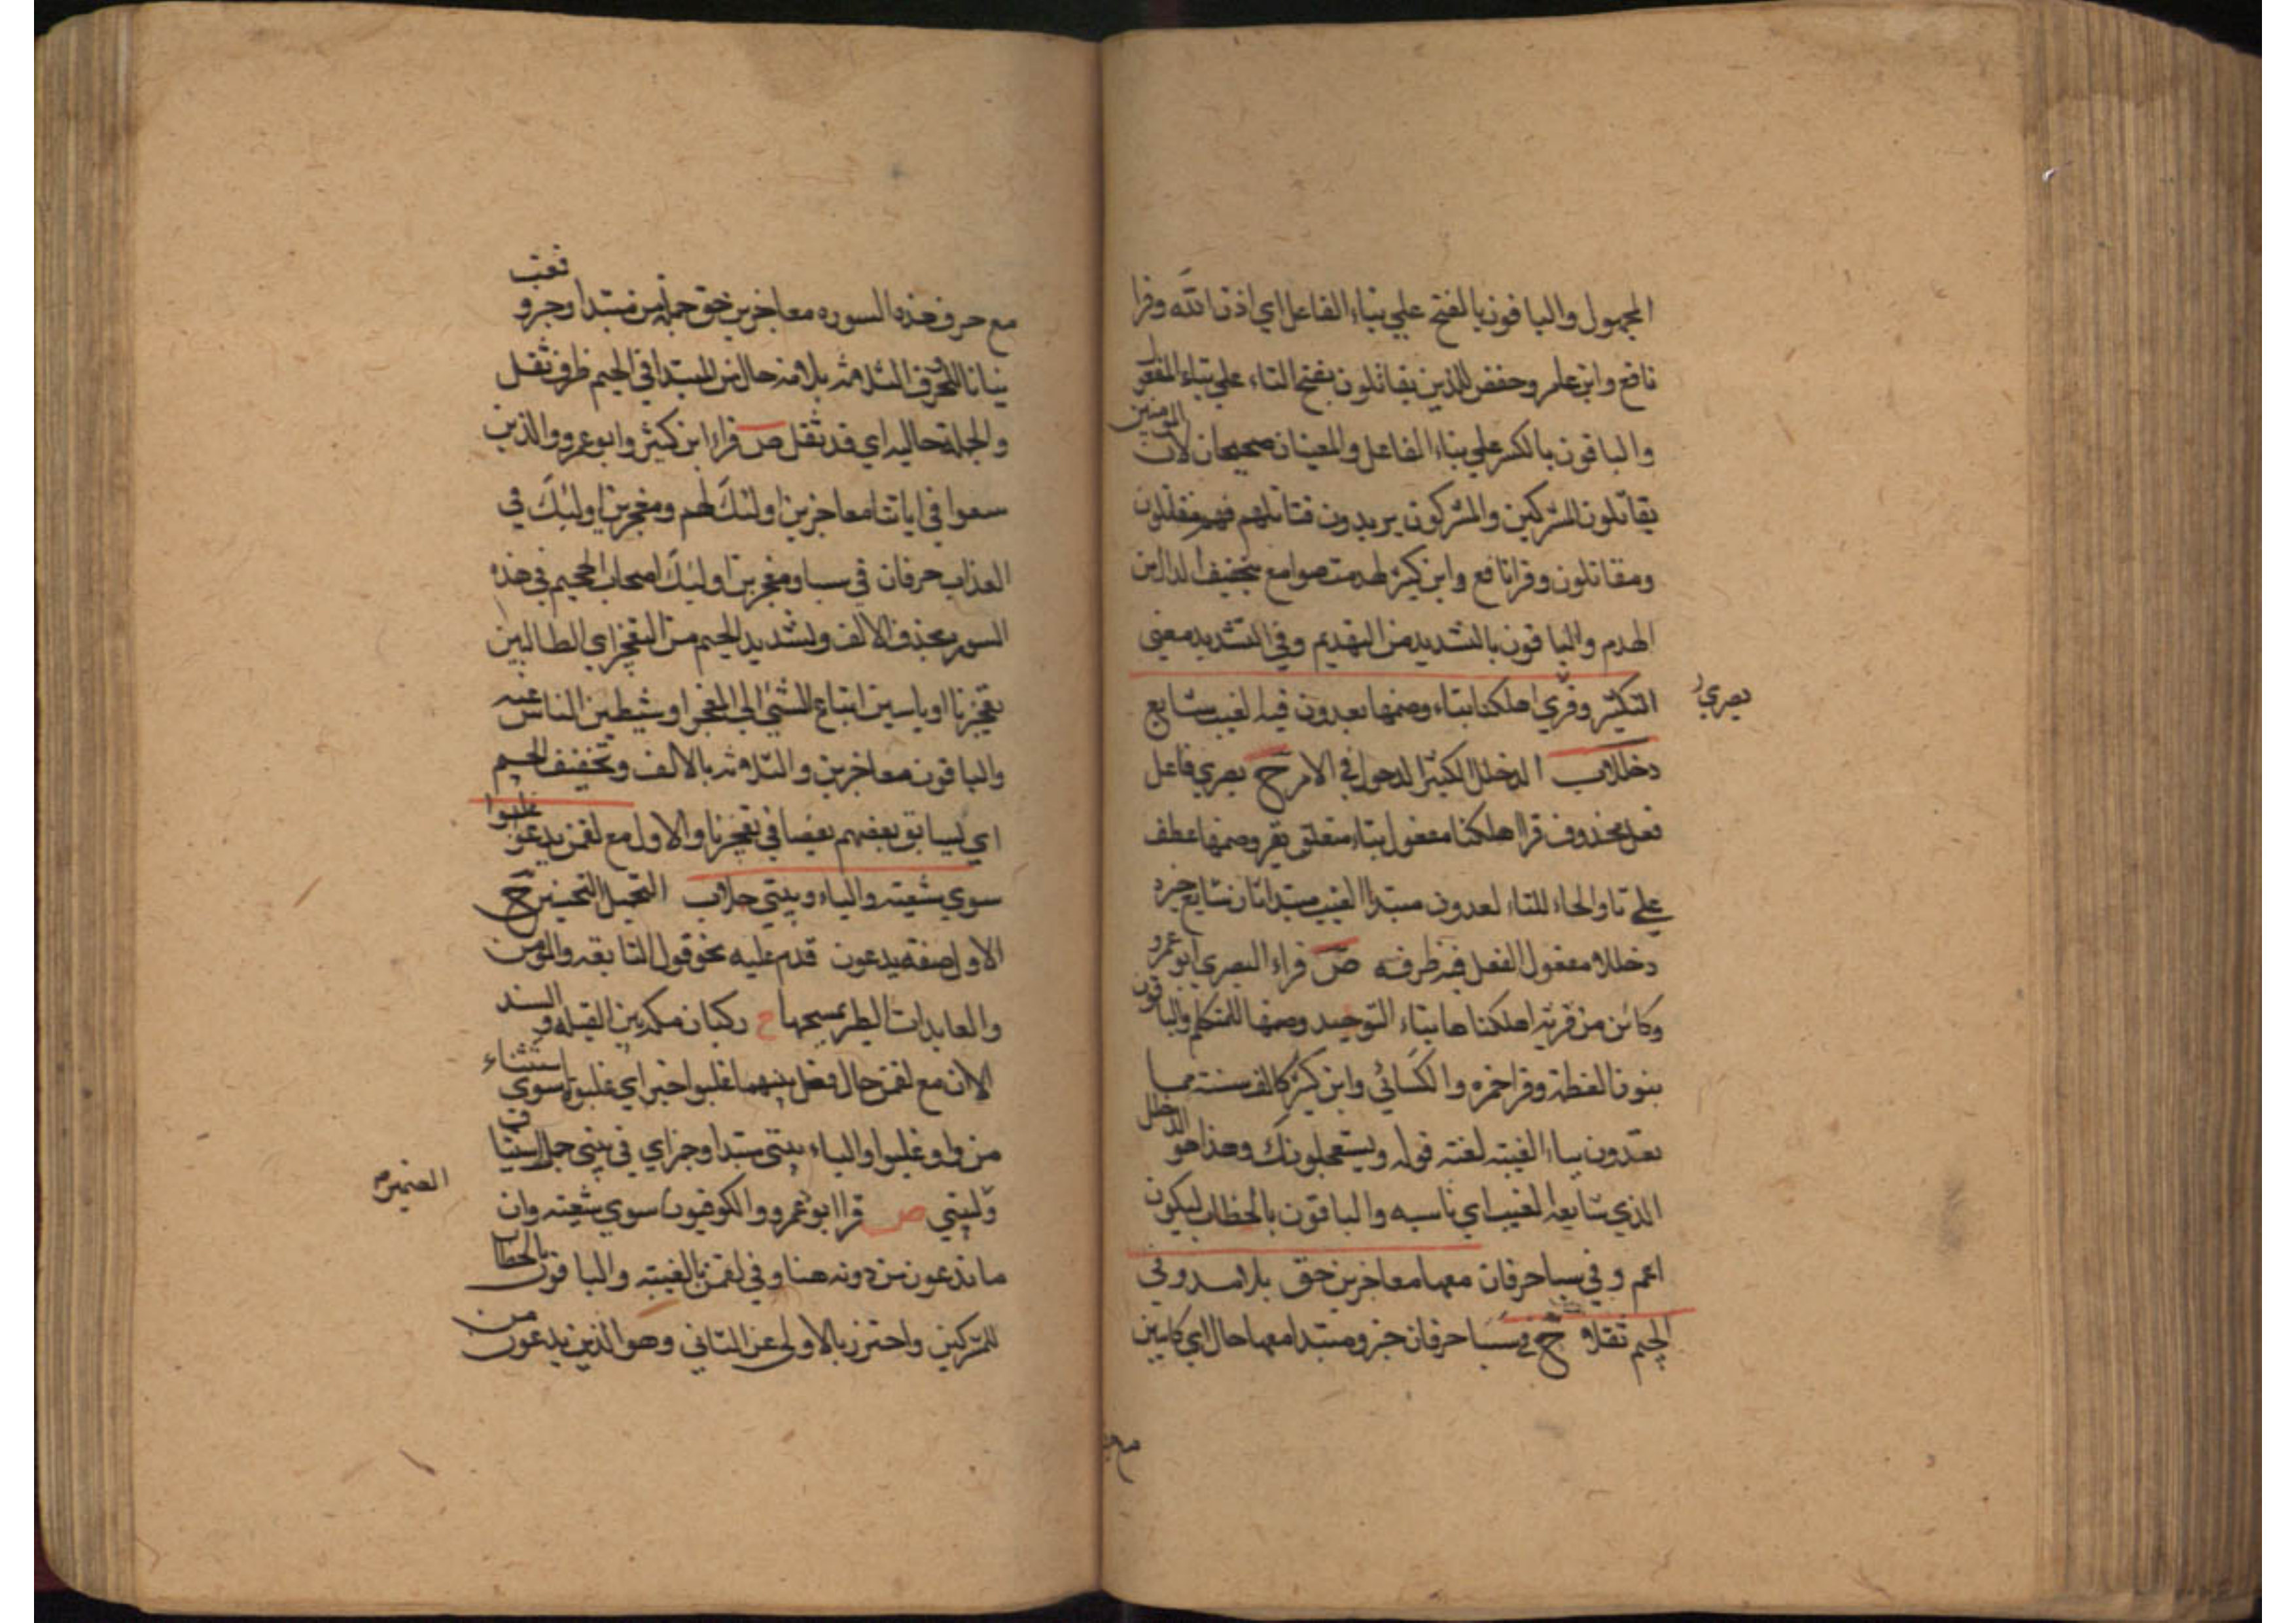 المجهول والباقون بالفتح علي بناء الفاعل اي اذن الله وقرا
نافع وابن عامر وحفص للذين يقاتلون بفتح التاء علي بناء المفعول
والباقون بالكسر علي بناء الفاعل والمعنيان صحيحان لان المومنين
يقاتلون المشركين والمشركون يريدون قتالهم فهم مقاتلون
ومقاتلون وقرا نافع وابن كثير لهدمت صوامع بتخفيف الدال من
الهدم والباقون بالتشديد من التهديم وفي التشديد معني
التكثير وبصري اهلكنا بتاء وضمها يعدون فيه لغيب شايع
بصري
دخللا ب الدخلل الكثير الدخول في الامر ح بصري فاعل
فعل محذوف قرا اهلكنا مفعول بتاء متعلق بقر وضمها عطف
علي تا والحاء للتاء لعدون مبتدا الغيب مبتدا ثان شايع خبره
دخللا مفعول الفعل فيه ظرفه ص قراء البصري ابو عمرو
وكائن من قرية اهلكناها بتاء التوحيد وضمها للمتكلم والباقون
بنون العظمة وقرا حمزه والكسائي وابن كثير كالف سنة مما
يعدون بياء الغيبة لغته قوله ويستعجلونك وهذا هو الدخلل
الذي شايعه الغيب اي ناسبه والباقون بالخطاب ليكون
اعم وفي سبا حرفان معها معاجزين حق بلا مد وفي
الجيم ثقلا ح في سبا حرفان خبر ومبتدا معها حال اي كاينين
مع حر
مع حرف هذه السوره معاجزين حق جملة من مبتدا وخبر و
ينا نا للحرف الثلاثه بلا مد حال من المبتدا في الجيم ظرف ثقل
والجملة حاليه اي قد ثقل ص قراء ابن كثير وابو عمرو والذين
سعوا في اياتنا معاجزين اولئك لهم ومعجزين اولئك في
العذاب حرفان في سبا ومعجزين اولئك اصحاب الجحيم في هذه
السوره بحذف الالف وتشديد الجيم من التعجيز اي الطالبين
تعجيزنا او ناسبين اتباع النبي الي العجز او مثبطين الناس عنه
والباقون معاجزين والثلاثه بالالف وتخفيف الجيم
اي يسابق بعضهم بعضا في تعجيزنا والاول مع لقمن يدعون غلبوا
سوي شعبة والياء وبيتي جلا ب التجمل التحسين ح
الاول صفة يدعون قدم عليه نحو قول النابغه والمومن
والعابدات الطير يمسحها ع ركبان مكه بين الغيل والسند
الان مع لقمن حال فعل بينهما غلبوا خبر اي غلبوه سوي استثناء
من واو غلبوا والياء بيتي مبتدا وخبر اي في بيتي جملا
ولبيتي ص قرا ابو عمرو والكوفيون سوي شعبة وان
الضمير
ما يدعون من دونه هنا وفي لقمن بالغيبة والباقون بالخطاب
للمشركين واحترز بالاولي عن الثاني وهو الذين يدعون من